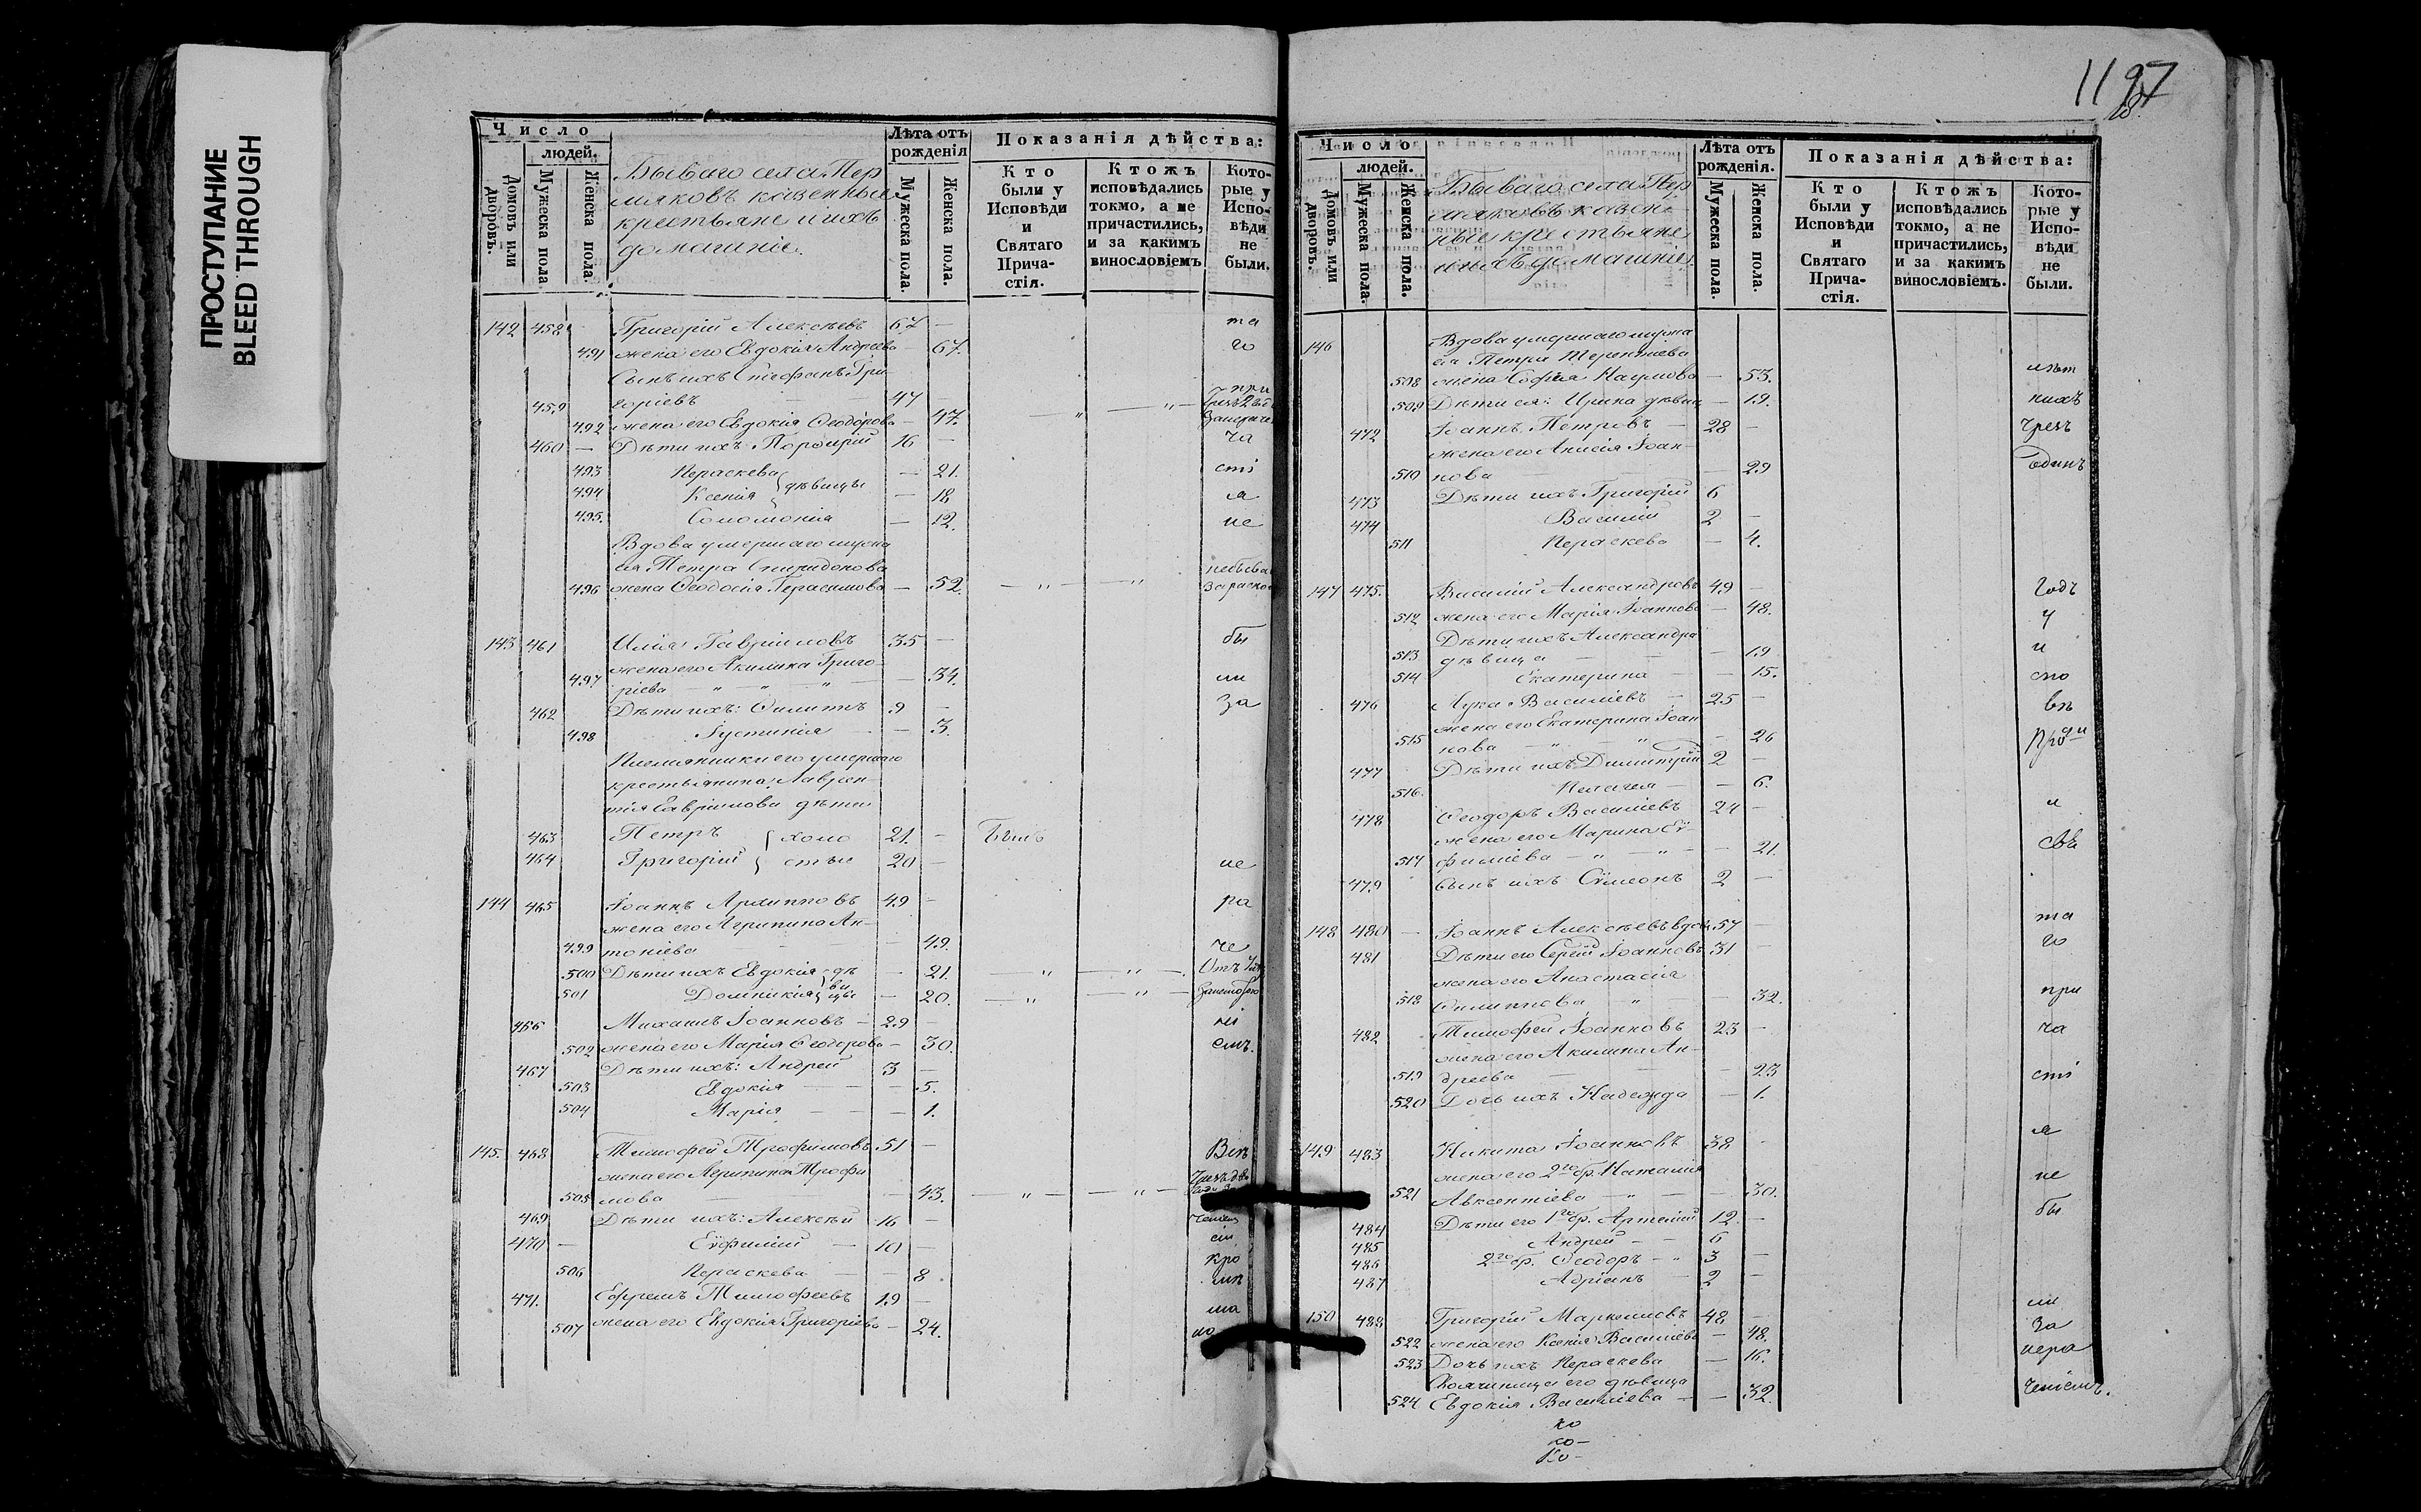 ПРОСТУПАНИЕ
BLEED THROUGH
Число
людей.
Домовъ или дворовъ.
Мужеска пола.
Женска пола.
Бываго села Пер
мяковъ казенные
крестьяне и ихъ
домашніе.
Лѣта отъ рожденія
Мужеска пола.
Женска пола.
Показанія дѣйства:
Кто были у Исповѣди и Святаго Прича-стія.
Ктожъ исповѣдались токмо, а не причастились, и за какимъ винословіемъ
Кото-рые у Испо-вѣди не были.
142 458 Григорій Алексѣевъ 67 — та
491 жена его Евдокія Андреева — 67. го
Сынъ ихъ Стефанъ Гри-
459 горіевъ 47 — при
492 жена его Евдокія Ѳеодорова — 47.
460 — Дѣти ихъ Порфирій 16 — ча
493 Параскева — 21. сті
494 Ксенія дѣвицы — 18 я
495. Соломонія — 12. не
Вдова умершаго мужа
ея Петра Спиридонова
496 жена Ѳеодосія Герасимова — 52.
143 461 Илія Гавріиловъ 35 — бы
жена его Акилина Григо-
497 ріева — 34. ли
462 Дѣти ихъ: Филиппъ 9 — за
498 Іустинія — 3.
Племянники его умершаго
крестьянина Лаврен-
тія Гавріилова дѣти
463 Петръ холо 21. — Былъ
464 Григорій стые 20 — не
144 465 Іоаннъ Архипповъ 49 — ра
жена его Агрипина Ан-
499 тоніева — 49. че
500 Дѣти ихъ Евдокія дѣ — 21.
501 Домникія вицы — 20.
466 Михаилъ Іоанновъ — 29 — ні
502 жена его Марія Ѳеодорова — 30. емъ.
467 Дѣти ихъ: Андрей 3 —
503 Евдокія — 5.
504 Марія — 1.
145. 468 Тимофей Трофимовъ 51 — Всѣ
жена его Агрипина Трофи
505 мова — 43.
469 Дѣти ихъ: Алексѣй 16 —
470 — Еѵфимій — 10 —
506 Параскева — 8. кро
471. Ефремъ Тимофеевъ 19 —
507 жена его Евдокія Григоріева — 24.
1197
Число
людей.
Домовъ или дворовъ.
Мужеска пола.
Женска пола.
Бываго села Пер
мяковъ казен-
ные крестьяне
и ихъ домашніе
Лѣта отъ рожденія.
Мужеска пола.
Женска пола.
Показанія дѣйства:
Кто были у Исповѣди и Святаго Прича-стія.
Ктожъ исповѣдались токмо, а не причастились, и за какимъ винословіемъ.
Кото-рые у Испо-вѣди не были.
146 Вдова умершаго мужа
ея Петра Терентіева
508 жена Софія Наумова — 53.
509 Дѣти ея: Ирина дѣвица — 19. нихъ
472 Іоаннъ Петровъ — 28 — чрезъ
жена его Анисія Іоан-
510 нова — 29 одинъ
473 Дѣти ихъ Григорій 6
474 Василій 2 —
511 Параскева — 4.
147 475. Василій Александровъ 49 — годъ
512 жена его Марія Іоаннова — 48. у
Дѣти ихъ Александра
513 дѣвица — 19 и
514 Екатерина — 15. спо
476 Лука Василіевъ — 25 — вѣ
жена его Екатерина Іоан
515 нова — 26
477 Дѣти ихъ Димитрій 2 —
516. Пелагея — 6.
478 Ѳеодоръ Василіевъ 24 — и
жена его Марина Еѵ-
517 фиміева — 21. свя
479 Сынъ ихъ Сѵмеонъ 2 —
148 480 — Іоаннъ Алексѣевъ вдов. 57 — та
481 Дѣти его Сергій Іоанновъ 31 го
жена его Анастасія
518 Филиппова — 32. при
482 Тимофей Іоанновъ 23 — ча
жена его Акилина Ан-
519 дреева — 23 сті
520 Дочь ихъ Надежда — 1.
я
149 483 Никита Іоанновъ 38 —
жена его 2го бр. Наталія не
521 Авксентіева — 30.
484 Дѣти его 1го бр. Артемій 12 — бы
485 Андрей — 6
486 2го бр. Ѳеодоръ — 3 —
487 Адріанъ — 2 —
150 488 Григорій Маркелловъ 48 ли
522 жена его Ксенія Василіева — 48. за
523 Дочь ихъ Параскева — 16. нера
Своячиница его дѣвица
524 Евдокія Василіева — 32. ченіемъ.